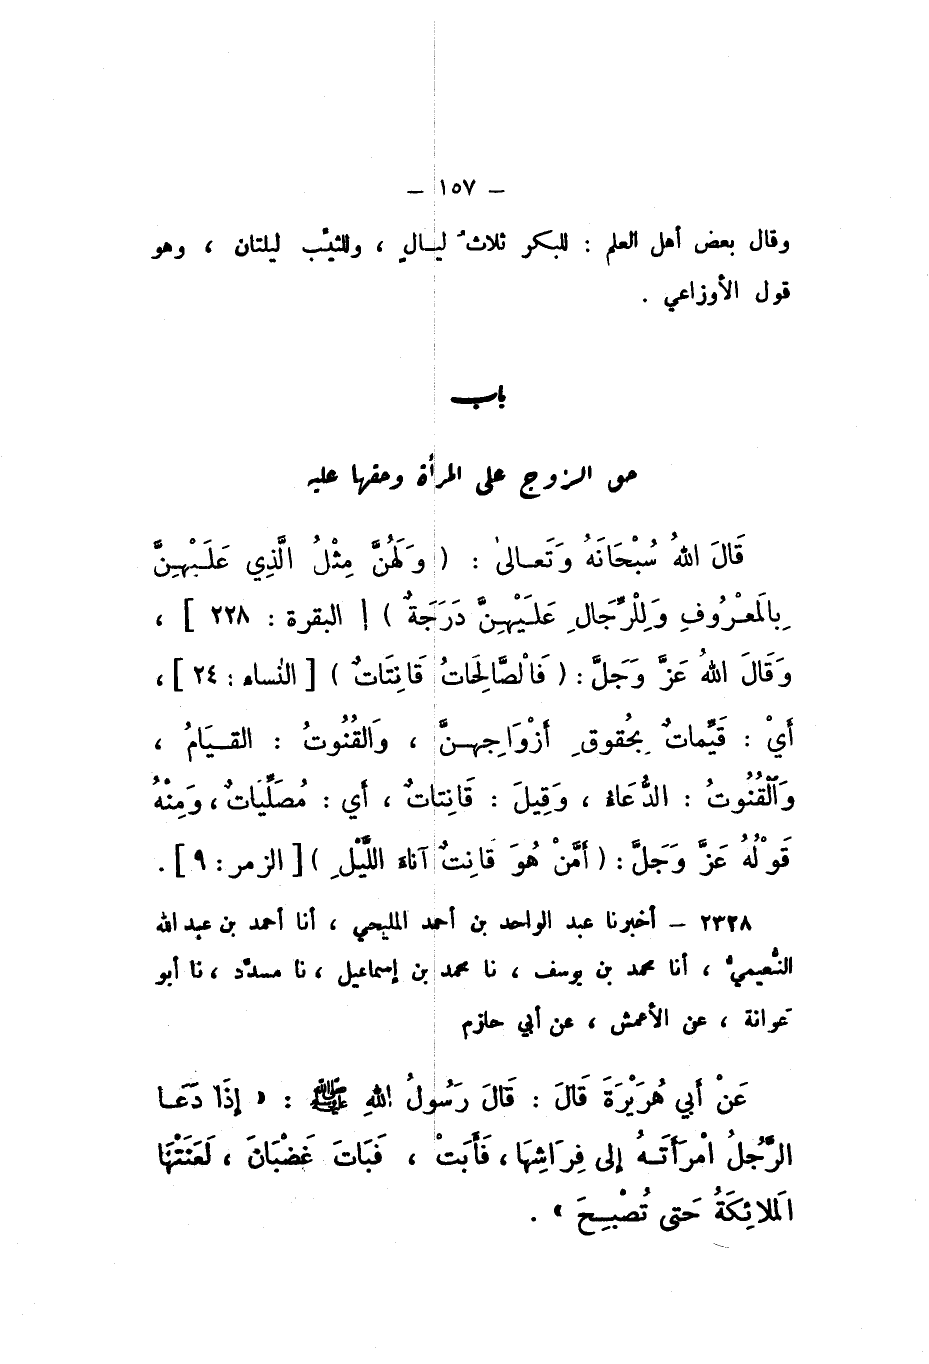 – ١٥٧ –
وقال بعض أهل العلم : للبكر ثلاثُ ليـالٍ ، وللثيِّب ليلتان ، وهو
قول الأوزاعي .
باب
حق الزوج على المرأة وحقها عليه
قَالَ اللهُ سُبْحَانَهُ وَتَعـالىٰ : ( وَلَهُنَّ مِثْلُ الَّذِي عَلَيْهِنَّ
بِالمَعْـرُوفِ وَلِلْرِّجَالِ عَلَـيْهِنَّ دَرَجَةٌ ) [ البقرة : ٢٢٨ ] ،
وَقَالَ اللهُ عَزَّ وَجَلَّ : ( فَالْصَّالِحَاتُ قَانِتَاتٌ ) [ النساء : ٢٤ ] ،
أَيْ : قَيِّماتٌ بِحُقوقِ أَزْوَاجِهـنَّ ، وَالقُنُوتُ : القـيَامُ ،
وَالْقُنُوتُ : الدُّعَاءُ ، وَقِيلَ : قَانِتاتٌ ، أَي : مُصَلِّيَاتٌ ، وَمِنْهُ
قَوْلُهُ عَزَّ وَجَلَّ : ( أَمَّنْ هُوَ قَانِتٌ آنَاءَ اللَّيْلِ ) [ الزمر : ٩ ] .
٢٣٢٨ – أخبرنا عبد الواحد بن أحمد المليحي ، أنا أحمد بن عبد الله
النُّعيميُّ ، أنا محمد بن يوسف ، نا محمد بن إسماعيل ، نا مسدَّد ، نا أبو
عَوانة ، عن الأعمش ، عن أبي حازم
عَنْ أَبي هُرَيْرَةَ قَالَ : قَالَ رَسُولُ اللهِ ﷺ : « إذَا دَعَـا
الرَّجُلُ امْرَأَتَـهُ إلى فِرَاشِهَا ، فَأَبَتْ ، فَبَاتَ غَضْبَانَ ، لَعَنَتْهَا
المَلائِكَةُ حَتى تُصْبِـحَ » .